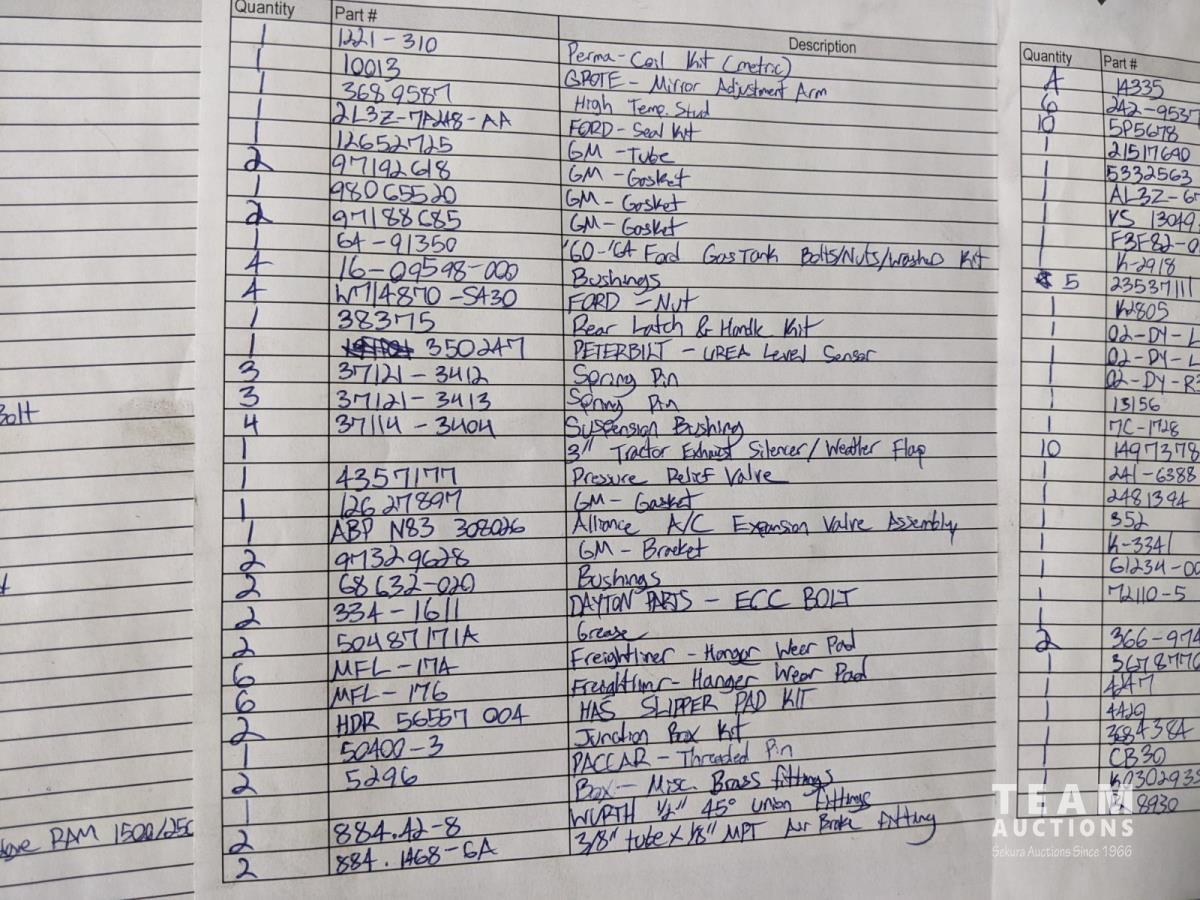 Quantity Part # Description
1 1221-310 Perma-Coil Kit (metric)
1 10013 GROTE - Mirror Adjustment Arm
1 3689587 High Temp. Stud
1 2L3Z-7A248-AA FORD - Seal Kit
1 12652725 GM - Tube
2 97192618 GM - Gasket
1 98065520 GM - Gasket
2 97188685 GM - Gasket
1 64-91350 '60-'64 Ford Gas Tank Bolts/Nuts/Washer Kit
4 16-09598-000 Bushings
4 W714870-S430 FORD - Nut
1 38375 Rear Latch & Handle Kit
1 350247 PETERBILT - UREA Level Sensor
3 37121-3412 Spring Pin
3 37121-3413 Spring Pin
4 37114-3404 Suspension Bushing
1 3" Tractor Exhaust Silencer/Weather Flap
1 4357177 Pressure Relief Valve
1 12627897 GM - Gasket
1 ABP N83 308026 Alliance A/C Expansion Valve Assembly
2 97329628 GM - Bracket
2 68632-020 Bushings
2 334-1611 DAYTON PARTS - ECC BOLT
2 50487171A Grease
6 MFL-17A Freightliner - Hanger Wear Pad
6 MFL-176 Freightliner - Hanger Wear Pad
2 HDR 56557 004 HAS SLIPPER PAD KIT
1 50400-3 Junction Box Kit
2 5296 PACCAR - Threaded Pin
1 Box - Misc. Brass fittings
2 884.42-8 WURTH 1/2" 45° union fittings
2 884.1468-6A 3/8" tube x 1/8" MPT Air Brake fitting
Quantity Part #
4 14335
6 242-9537
10 5P5678
1 21517640
1 5332563
1 AL3Z-6
1 VS 13049
1 F3F82-0
1 K-2918
5 23537111
1 K2805
1 02-DY-L
1 02-DY-L
1 02-DY-R3
1 13156
1 7C-1728
10 1497378
1 241-6388
1 2481394
1 352
1 K-3341
1 61234-00
1 72110-5
1
2 366-974
1 3678770
1 4247
1 4429
1 3684384
1 CB30
1 K0302935
1 8930
Bolt
RAM 1500/250
TEAM
AUCTIONS
Sekura Auctions Since 1966